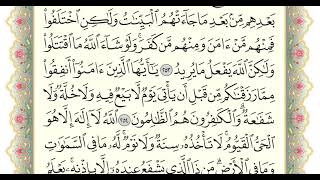 بَعْدِهِم مِّنۢ بَعْدِ مَا جَآءَتْهُمُ ٱلْبَيِّنَٰتُ وَلَٰكِنِ ٱخْتَلَفُوا۟
فَمِنْهُم مَّنْ ءَامَنَ وَمِنْهُم مَّن كَفَرَ ۚ وَلَوْ شَآءَ ٱللَّهُ مَا ٱقْتَتَلُوا۟
وَلَٰكِنَّ ٱللَّهَ يَفْعَلُ مَا يُرِيدُ ٢٥٣ يَٰٓأَيُّهَا ٱلَّذِينَ ءَامَنُوٓا۟ أَنفِقُوا۟
مِمَّا رَزَقْنَٰكُم مِّن قَبْلِ أَن يَأْتِىَ يَوْمٌ لَّا بَيْعٌ فِيهِ وَلَا خُلَّةٌ وَلَا
شَفَٰعَةٌ ۗ وَٱلْكَٰفِرُونَ هُمُ ٱلظَّٰلِمُونَ ٢٥٤ ٱللَّهُ لَآ إِلَٰهَ إِلَّا هُوَ
ٱلْحَىُّ ٱلْقَيُّومُ ۚ لَا تَأْخُذُهُۥ سِنَةٌ وَلَا نَوْمٌ ۚ لَّهُۥ مَا فِى ٱلسَّمَٰوَٰتِ
وَمَا فِى ٱلْأَرْضِ ۗ مَن ذَا ٱلَّذِى يَشْفَعُ عِندَهُۥٓ إِلَّا بِإِذْنِهِۦ ۚ يَعْلَمُ